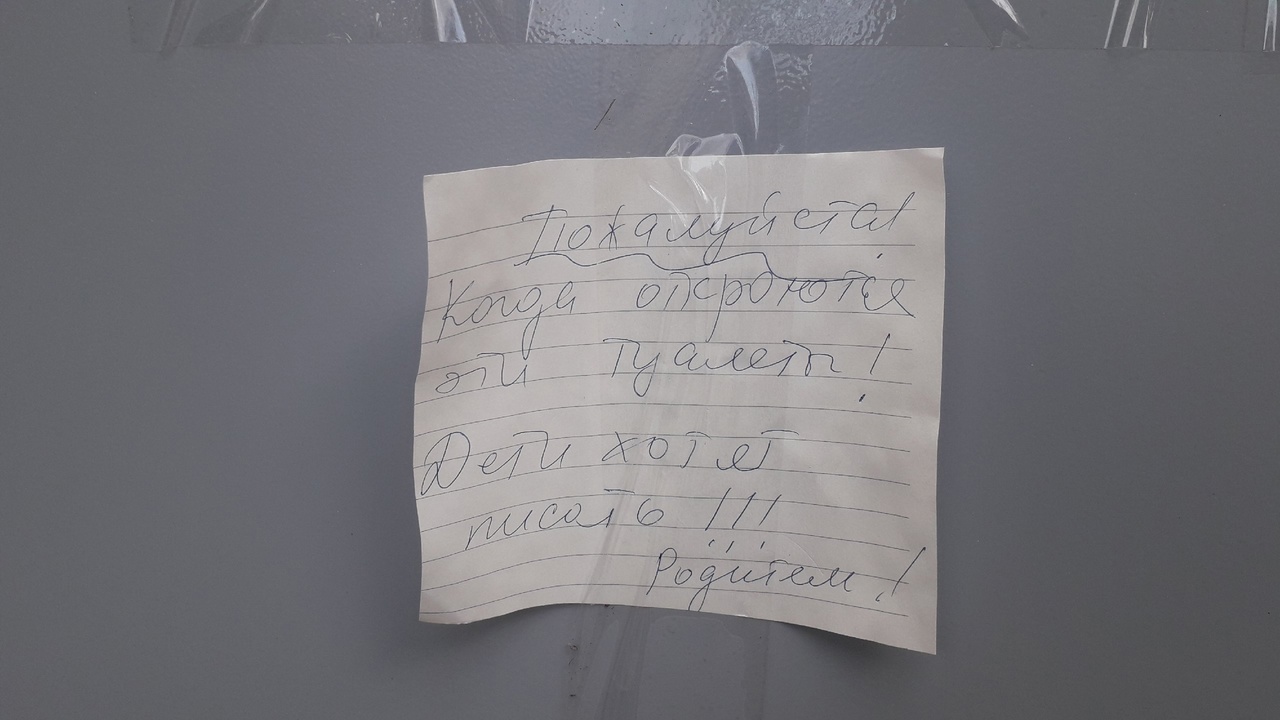 Пожалуйста!
Когда откроются
эти туалеты!
Дети хотят
писать!!!
Родители!